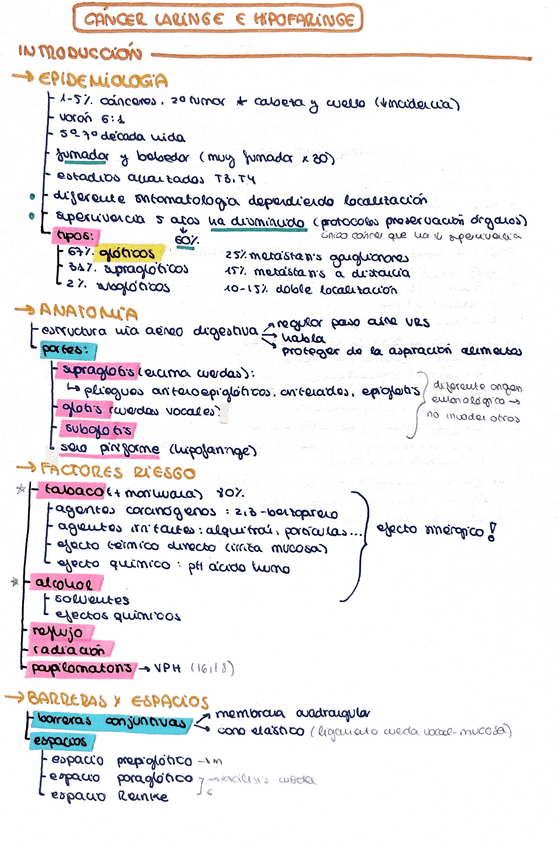 CÁNCER LARINGE E HIPOFARINGE
INTRODUCCIÓN
→ EPIDEMIOLOGÍA
1-5% cánceres. 2º tumor + cabeza y cuello (↓incidencia)
varón 6:1
5ª-7ª década vida
fumador y bebedor (muy fumador x 30)
estadios avanzados T3, T4
diferente sintomatología dependiendo localización
supervivencia 5 años ha disminuido (protocolos preservación órganos)
60%
único cáncer que ha ↓ supervivencia
tipos:
67% glóticos 25% metástasis ganglionares
31% supraglóticos 15% metástasis a distancia
2% subglóticos 10-15% doble localización
→ ANATOMÍA
estructura vía aéreo digestiva
regular paso aire VRS
habla
proteger de la aspiración alimentos
partes:
supraglotis (encima cuerdas):
↳ pliegues aritenoepiglóticos, aritenoides, epiglotis
glotis (cuerdas vocales)
subglotis
diferente origen
embriológico →
no invaden otros
seno piriforme (hipofaringe)
→ FACTORES RIESGO
tabaco (+ marihuana) 80%
agentes carcinógenos : 2,3-benzopireno
agentes irritantes : alquitrán, partículas...
efecto térmico directo (irrita mucosa)
efecto químico : pH ácido humo
efecto sinérgico!
alcohol
solventes
efectos químicos
reflujo
radiación
papilomatosis → VPH (16,18)
→ BARRERAS Y ESPACIOS
barreras conjuntivas
membrana cuadrangular
cono elástico (ligamento cuerda vocal-mucosa)
espacios
espacio preepiglótico
espacio paraglótico → parálisis cuerda
espacio Reinke